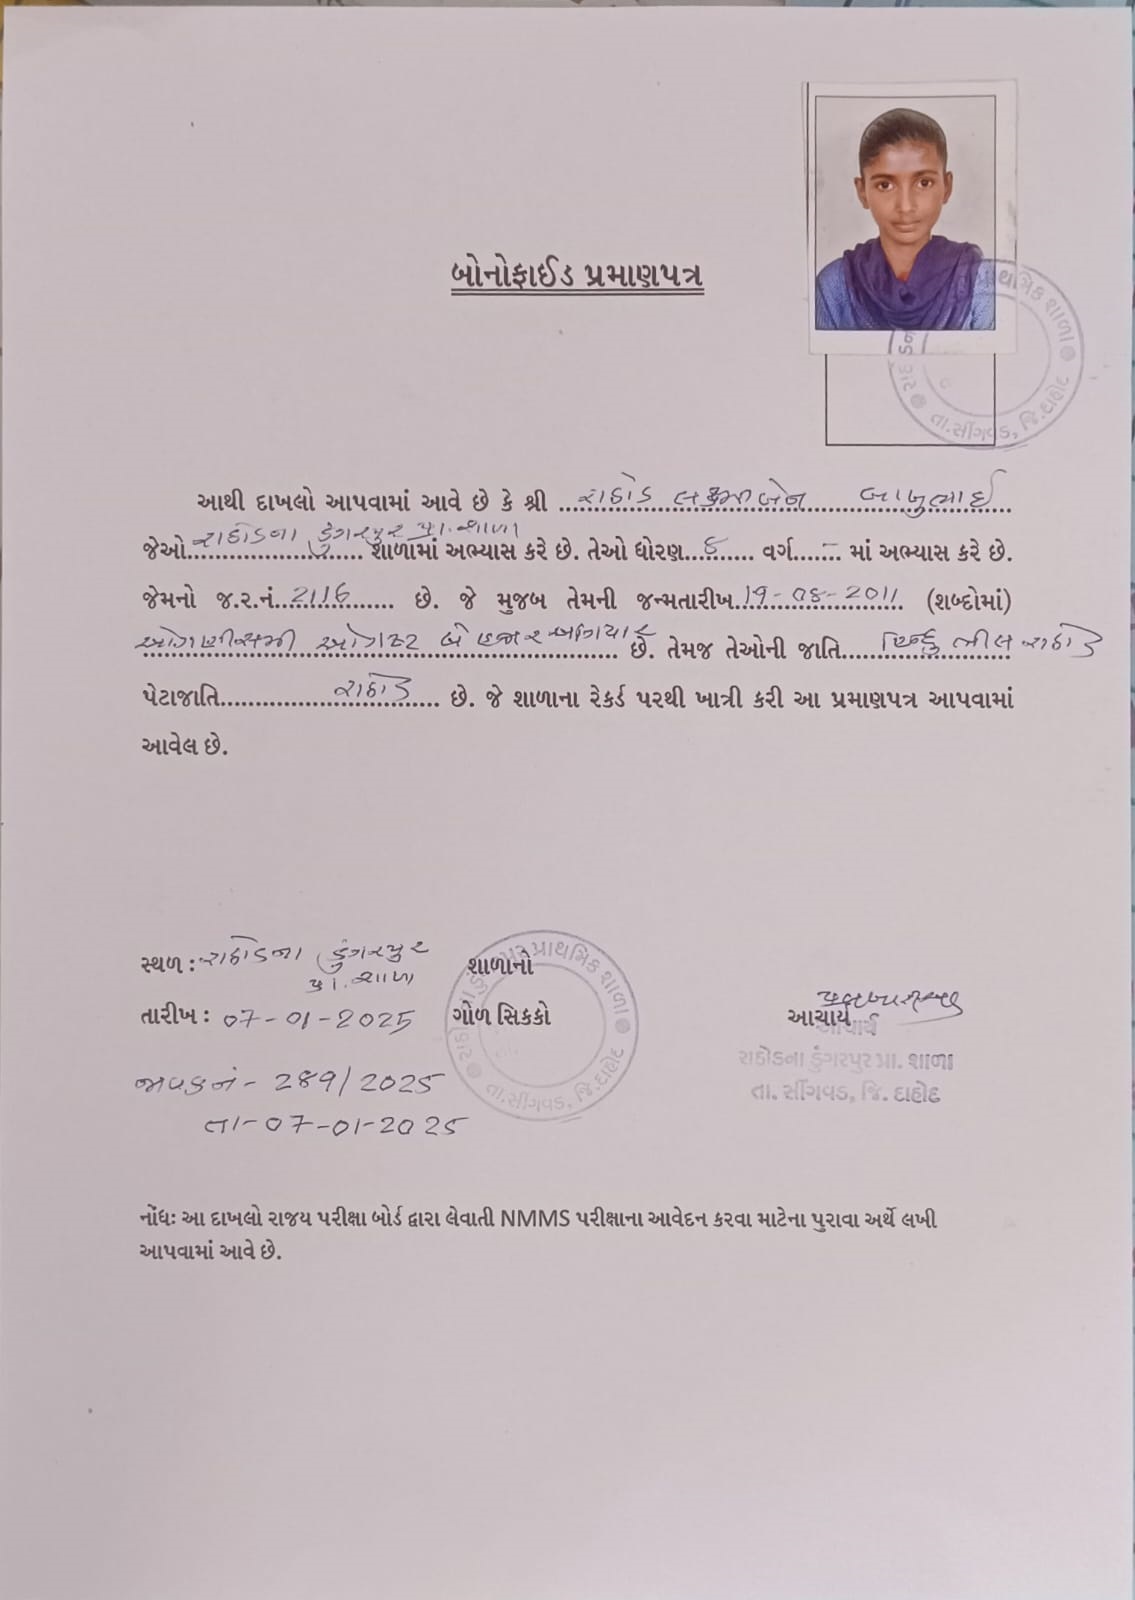 બોનોફાઈડ પ્રમાણપત્ર
પ્રાથમિક શાળા
તા.સીંગવડ, જિ.દાહોદ
આથી દાખલો આપવામાં આવે છે કે શ્રી રાઠોડ લક્ષ્મીબેન બાબુભાઈ
જેઓ રાઠોડના ડુંગરપુર પ્રા.શાળા શાળામાં અભ્યાસ કરે છે. તેઓ ધોરણ ૮ વર્ગ - માં અભ્યાસ કરે છે.
જેમનો જ.ર.નં. 2116 છે. જે મુજબ તેમની જન્મતારીખ 19-08-2011 (શબ્દોમાં)
ઓગણીસમી ઓગષ્ટ બે હજાર અગિયાર છે. તેમજ તેઓની જાતિ હિન્દુ ભીલ રાઠોડ
પેટાજાતિ રાઠોડ છે. જે શાળાના રેકર્ડ પરથી ખાત્રી કરી આ પ્રમાણપત્ર આપવામાં
આવેલ છે.
સ્થળ : રાઠોડના ડુંગરપુર પ્રા. શાળા
શાળાનો
તારીખ : 07-01-2025
ગોળ સિક્કો
આચાર્ય
આચાર્ય
રાઠોડના ડુંગરપુર પ્રા. શાળા
તા. સીંગવડ, જિ. દાહોદ
જાવકનં - 289/2025
તા-07-01-2025
ડુંગરપુર પ્રાથમિક શાળા
તા.સીંગવડ, જિ.દાહોદ
નોંધઃ આ દાખલો રાજય પરીક્ષા બોર્ડ દ્વારા લેવાતી NMMS પરીક્ષાના આવેદન કરવા માટેના પુરાવા અર્થે લખી
આપવામાં આવે છે.